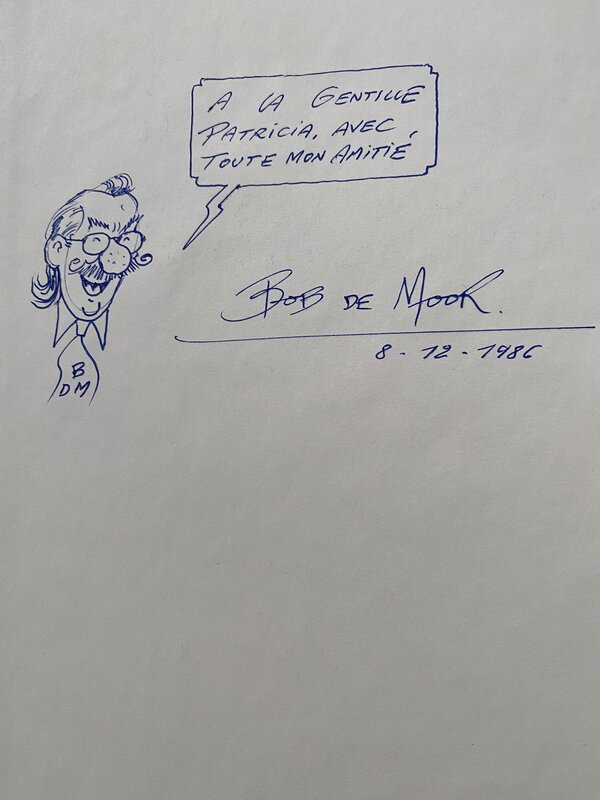 A LA GENTILLE
PATRICIA, AVEC
TOUTE MON AMITIÉ
BOB DE MOOR.
8 - 12 - 1986
B
DM